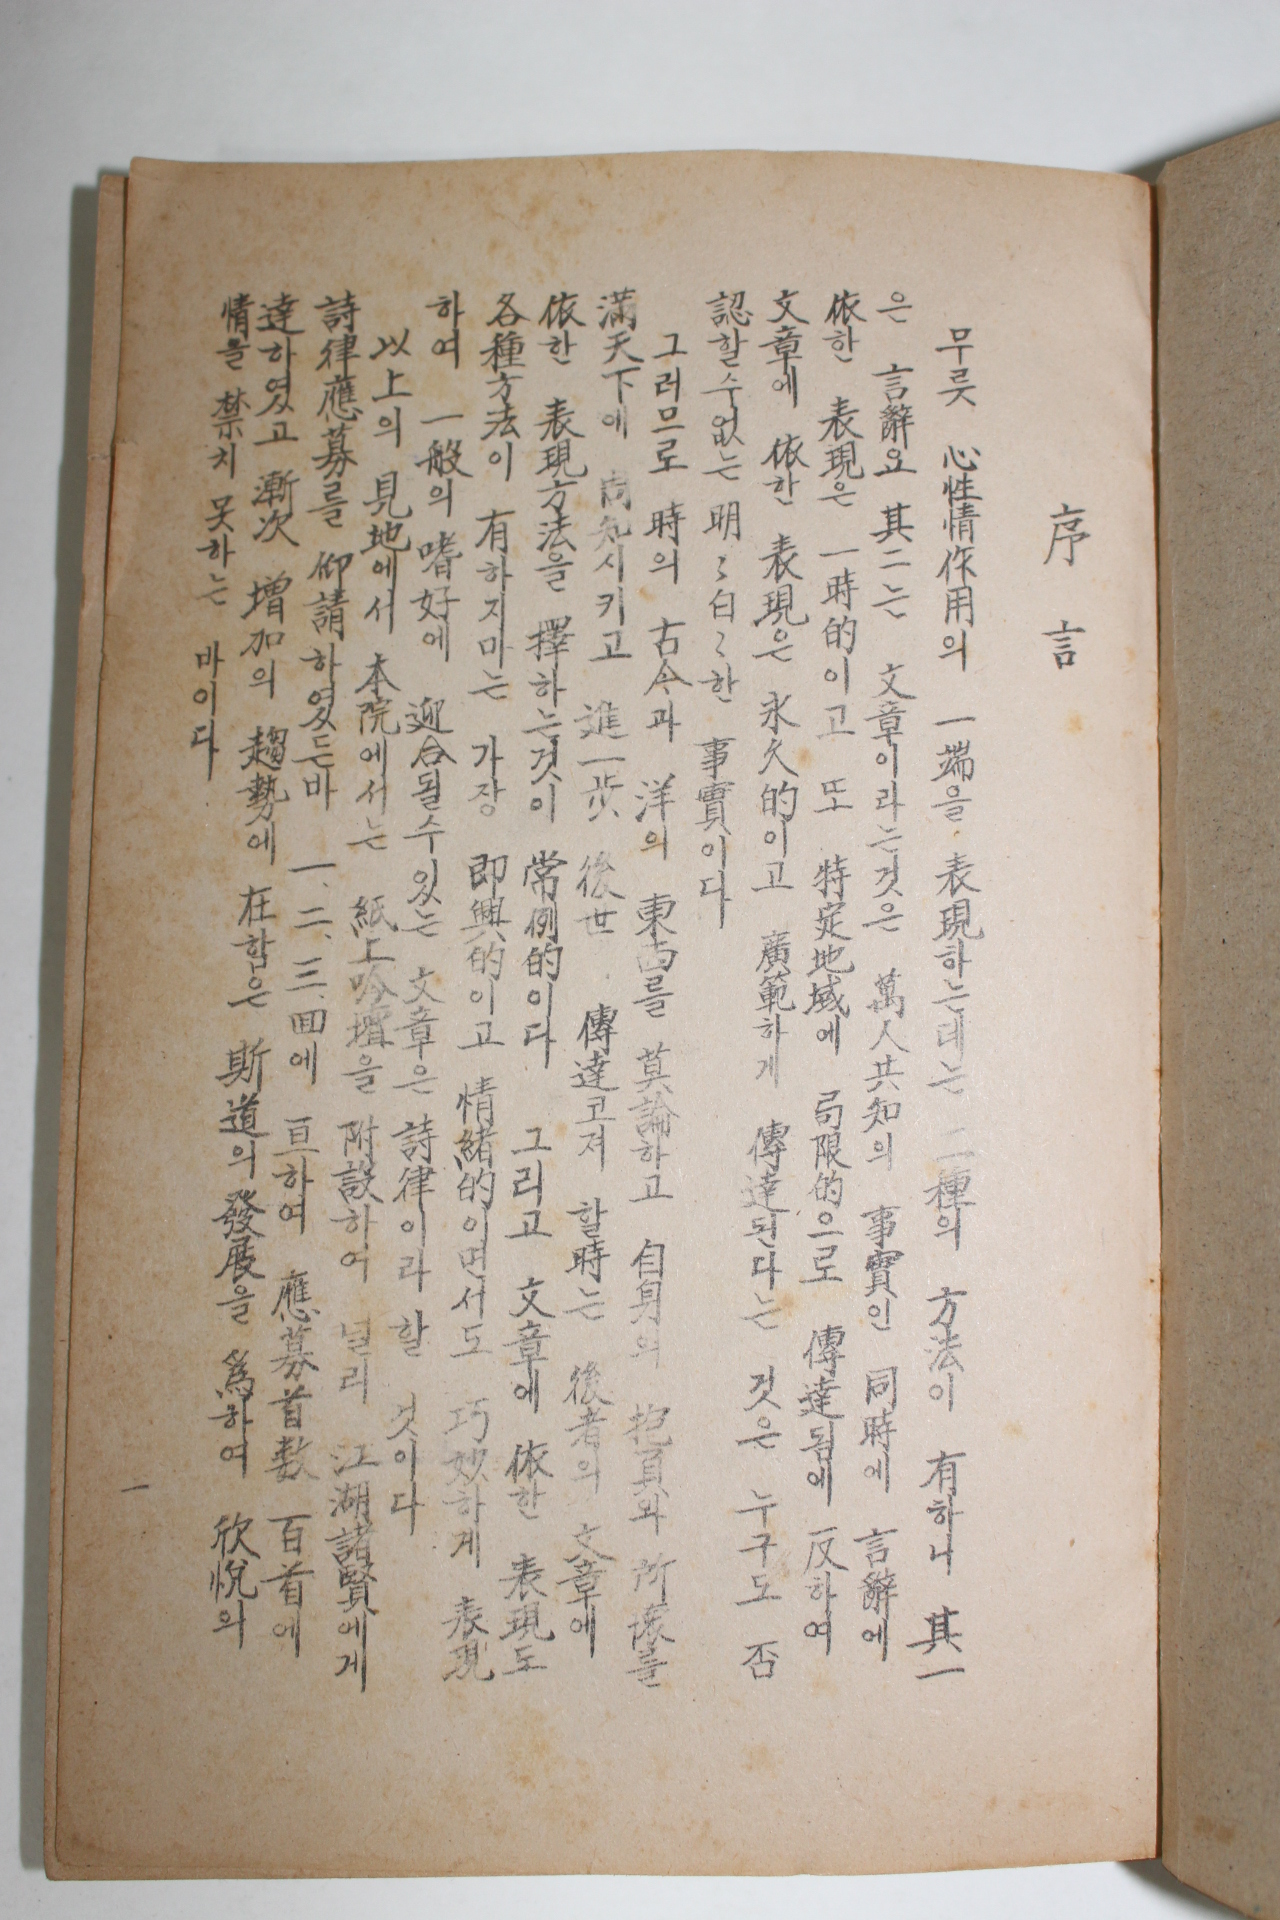 序言
무릇 心性情作用의 一端을 表現하는데는 二種의 方法이 有하니 其一
은 言辭요 其二는 文章이라는것은 萬人共知의 事實인 同時에 言辭에
依한 表現은 一時的이고 또 特定地域에 局限的으로 傳達됨에 反하여
文章에 依한 表現은 永久的이고 廣範하게 傳達된다는 것은 누구도 否
認할수없는 明〻白〻한 事實이다
그러므로 時의 古今과 洋의 東西를 莫論하고 自身의 抱負와 所懷를
滿天下에 周知시키고 進一步 後世 傳達고저 할時는 後者의 文章에
依한 表現方法을 擇하는것이 常例的이다 그리고 文章에 依한 表現도
各種方法이 有하지마는 가장 即興的이고 情緖的이면서도 巧妙하게 表現
하여 一般의 嗜好에 迎合될수있는 文章은 詩律이라 할 것이다
以上의 見地에서 本院에서는 紙上吟壇을 附設하여 널리 江湖諸賢에게
詩律應募를 仰請하였든바 一、二、三、回에 亘하여 應募首數 百首에
達하였고 漸次 增加의 趨勢에 在함은 斯道의 發展을 爲하여 欣悅와
情을 禁치 못하는 바이다
一